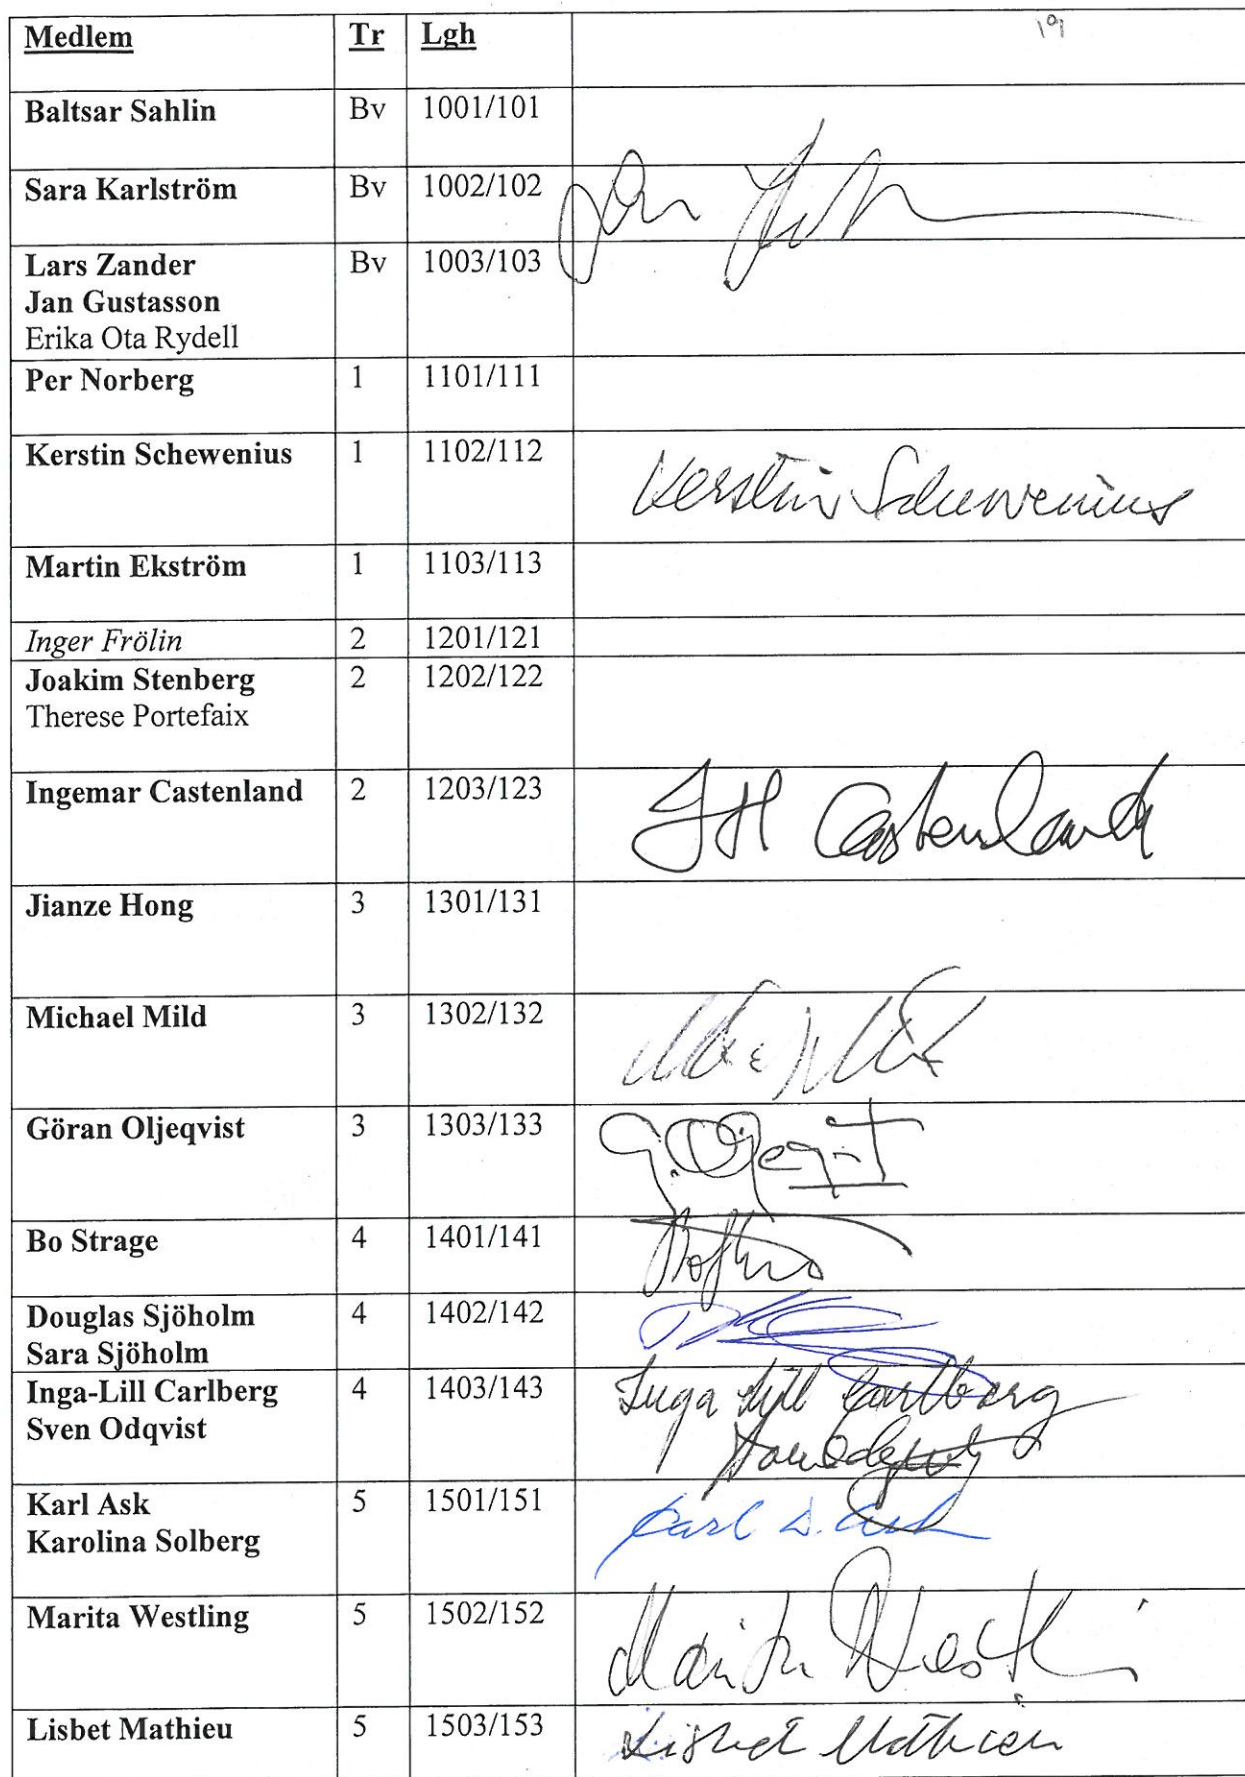 Medlem Tr Lgh 19
Baltsar Sahlin Bv 1001/101
Sara Karlström Bv 1002/102
Lars Zander Bv 1003/103
Jan Gustasson
Erika Ota Rydell
Per Norberg 1 1101/111
Kerstin Schewenius 1 1102/112 Kerstin Schewenius
Martin Ekström 1 1103/113
Inger Frölin 2 1201/121
Joakim Stenberg 2 1202/122
Therese Portefaix
Ingemar Castenland 2 1203/123 Castenland
Jianze Hong 3 1301/131
Michael Mild 3 1302/132
Göran Oljeqvist 3 1303/133
Bo Strage 4 1401/141
Douglas Sjöholm 4 1402/142
Sara Sjöholm
Inga-Lill Carlberg 4 1403/143 Inga Lill Carlberg
Sven Odqvist
Karl Ask 5 1501/151 Karl D. Ask
Karolina Solberg
Marita Westling 5 1502/152 Marita
Lisbet Mathieu 5 1503/153 Lisbet Mathieu